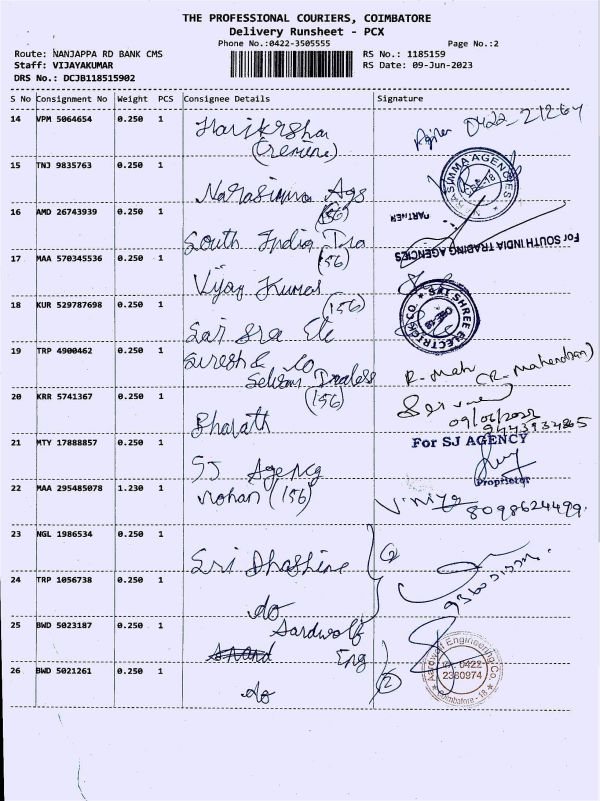 THE PROFESSIONAL COURIERS, COIMBATORE
Delivery Runsheet - PCX
Phone No.:0422-3505555 Page No.:2
Route: NANJAPPA RD BANK CMS RS No.: 1185159
Staff: VIJAYAKUMAR RS Date: 09-Jun-2023
DRS No.: DCJB118515902
S No Consignment No Weight PCS Consignee Details Signature
14 VPM 5064654 0.250 1 Harikrshan
(cremine)
15 TNJ 9835763 0.250 1 Narasimma Ags
(156)
NARASIMMA AGENCIES
CBE-18
16 AMD 26743939 0.250 1 South India Tra
(156)
PARTNER
For SOUTH INDIA TRADING AGENCIES
17 MAA 570345536 0.250 1 Vijay Kumar
(156)
18 KUR 529787698 0.250 1 Sai Sra Ele
SRI SHREE ELECTRIC CO.
CBE-18
19 TRP 4900462 0.250 1 Suresh & Co
Selvam Dealers
(156)
R. Mah (R. Mahendran)
20 KRR 5741367 0.250 1 Bharath
09/06/2023
9443934865
21 MTY 17888857 0.250 1 SJ Agency
For SJ AGENCY
Proprietor
22 MAA 295485078 1.230 1 Mohan (156)
8098624499
23 NGL 1986534 0.250 1 Sri Dhashine
(2)
24 TRP 1056738 0.250 1 do
25 BWD 5023187 0.250 1 Aardwolf
Anand Eng
26 BWD 5021261 0.250 1 do
(2)
Aardwolf Engineering Co.
0422
2380974
Coimbatore - 18